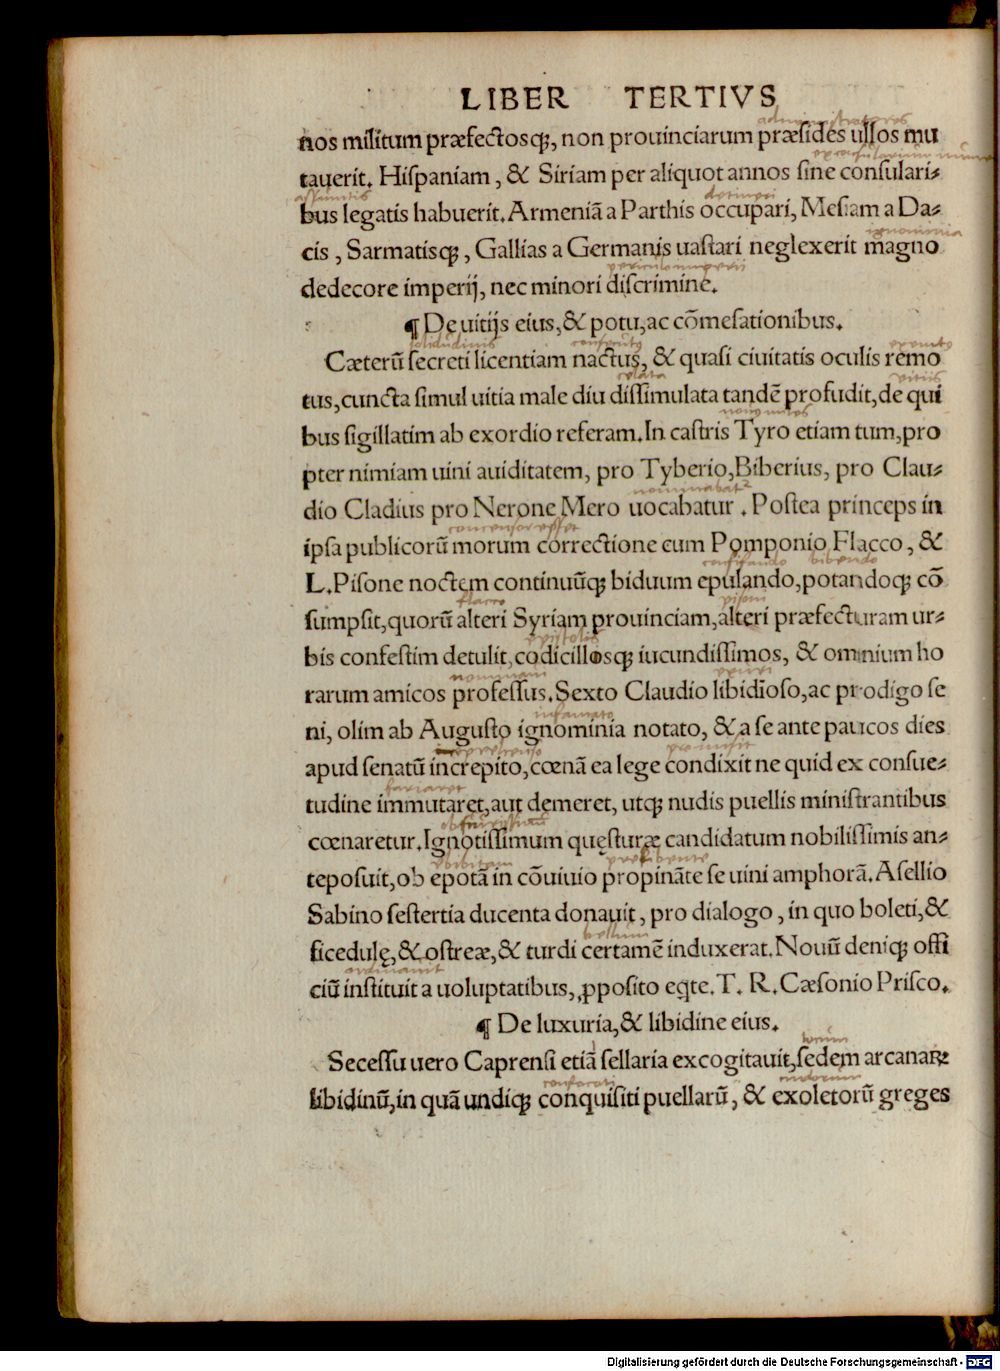 LIBER TERTIVS
administratores
nos militum præfectosq;, non prouinciarum præsides ullos mu
tauerit. Hispaniam, & Siriam per aliquot annos sine consulari-
detineri
bus legatis habuerit. Armeniā a Parthis occupari, Mesiam a Da-
ignominia
cis, Sarmatisq;, Gallias a Germanis uastari neglexerit magno
periculo imperii
dedecore imperij, nec minori discrimine.
¶ De uitijs eius, & potu, ac cōmesationibus.
solidudinis
Cæterū secreti licentiam nactus, & quasi ciuitatis oculis remo
celata vitiis
tus, cuncta simul uitia male diu dissimulata tandē profudit, de qui
bus sigillatim ab exordio referam. In castris Tyro etiam tum, pro
pter nimiam uini auiditatem, pro Tyberio, Biberius, pro Clau-
dio Cladius pro Nerone Mero uocabatur. Postea princeps in
ipsa publicorū morum correctione cum Pomponio Flacco, &
bibendo
L. Pisone noctem continuūq; biduum epulando, potandoq; cō
flacco pisoni
sumpsit, quorū alteri Syriam prouinciam, alteri præfecturam ur-
epistolis
bis confestim detulit, codicillosq; iucundissimos, & omnium ho
rarum amicos professus. Sexto Claudio libidioso, ac prodigo se
infamato
ni, olim ab Augusto ignominia notato, & a se ante paucos dies
promisit
apud senatū increpito, cœnā ea lege condixit ne quid ex consue-
variaret
tudine immutaret, aut demeret, utq; nudis puellis ministrantibus
cœnaretur. Ignotissimum quęsturæ candidatum nobilissimis an-
ebibitam
teposuit, ob epotā in cōuiuio propināte se uini amphorā. Asellio
Sabino sestertia ducenta donauit, pro dialogo, in quo boleti, &
bellum
ficedulę, & ostreæ, & turdi certamē induxerat. Nouū deniq; offi
ordinavit
ciū instituit a uoluptatibus, ꝓposito eq̄te. T. R. Cæsonio Prisco.
¶ De luxuria, & libidine eius.
locum
Secessu uero Caprensi etiā sellaria excogitauit, sedem arcanaꝝ
libidinū, in quā undiq; conquisiti puellarū, & exoletorū greges
Digitalisierung gefördert durch die Deutsche Forschungsgemeinschaft - DFG